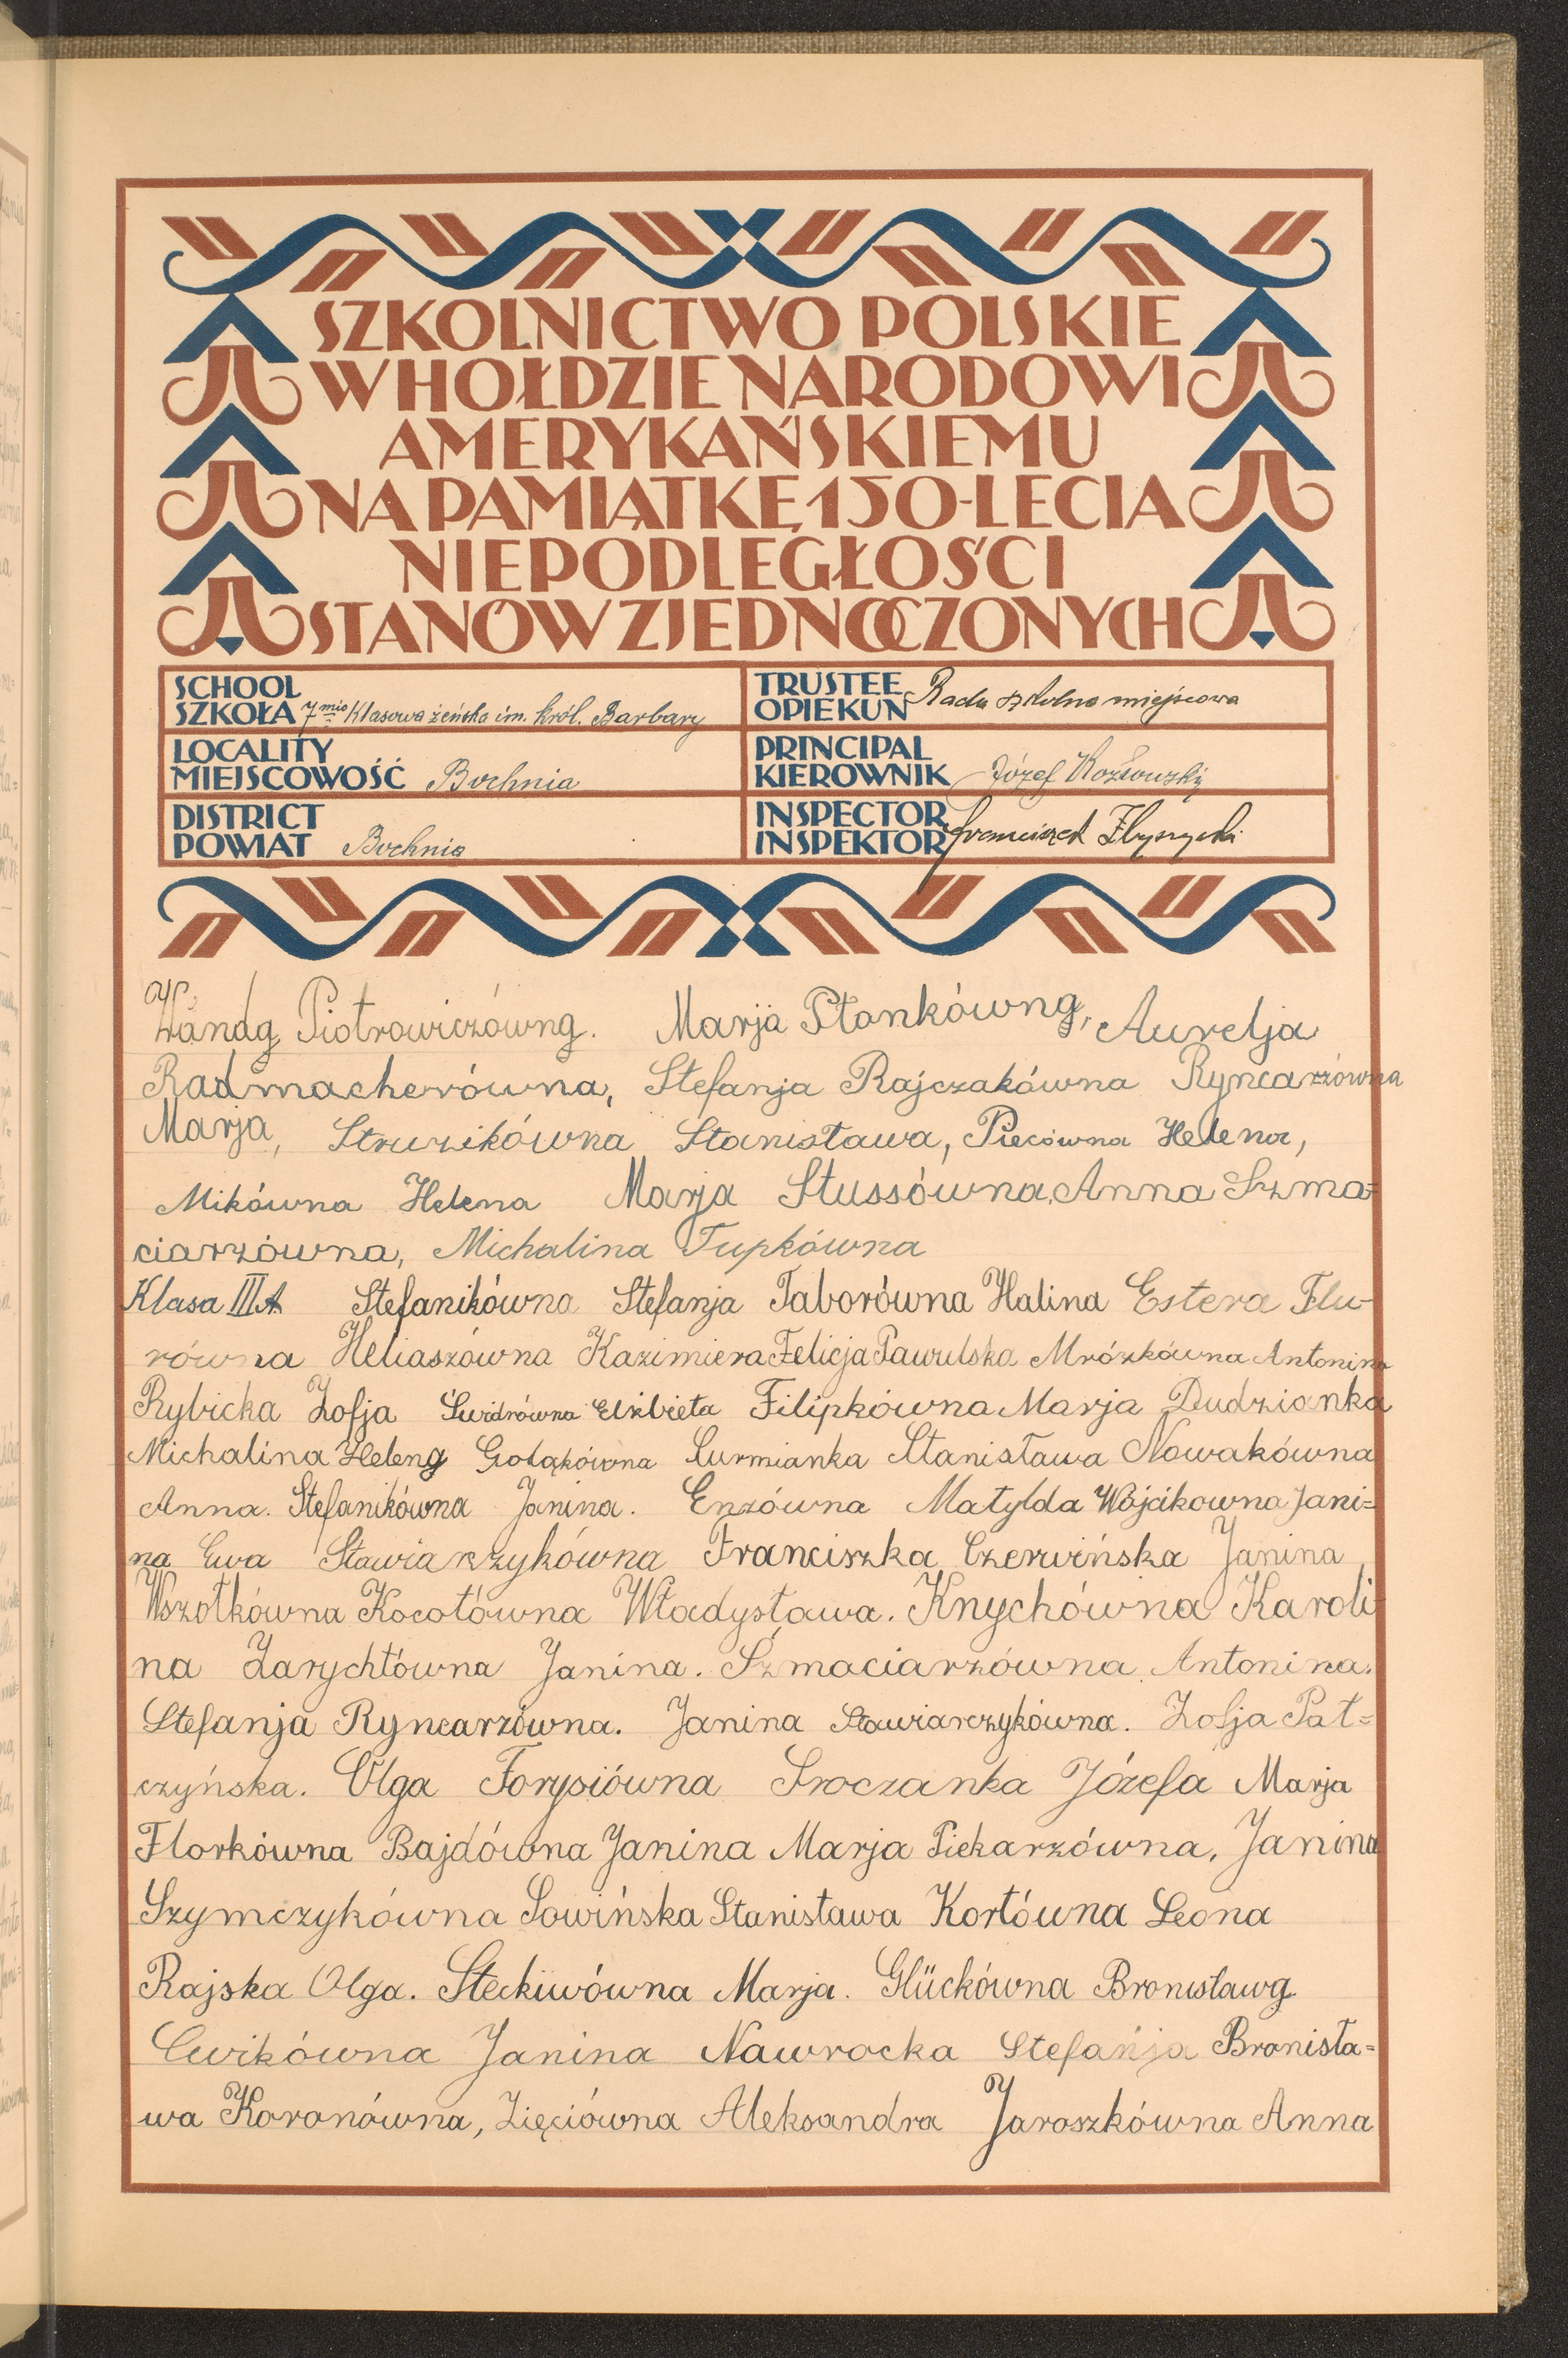 SZKOLNICTWO POLSKIE
W HOŁDZIE NARODOWI
AMERYKAŃSKIEMU
NA PAMIĄTKĘ 150-LECIA
NIEPODLEGŁOŚCI
STANÓW ZJEDNOCZONYCH
SCHOOL
SZKOŁA 7mio klasowa żeńska im. król. Barbary
TRUSTEE
OPIEKUN Rada szkolna miejscowa
LOCALITY
MIEJSCOWOŚĆ Bochnia
PRINCIPAL
KIEROWNIK Józef Kozłowski
DISTRICT
POWIAT Bochnia
INSPECTOR
INSPEKTOR Franciszek
Wanda Piotrowiczówna. Marja Płonkówna, Aurelja
Radmacherówna, Stefanja Rajczakówna Ryncarzówna
Marja, Struzikówna Stanisława, Piecówna Helena,
Mikówna Helena Marja Stussówna, Anna Szma=
ciarzówna, Michalina Tupkówna
Klasa III A Stefanikówna Stefanja Taborówna Halina Estera Flu-
równa Heliaszówna Kazimiera Felicja Pawulska Mrózkówna Antonina
Rybicka Zofja Świdrówna Elżbieta Filipkówna Marja Dudzianka
Michalina Helena Gołąkówna Curmianka Stanisława Nowakówna
Anna. Stefanikówna Janina. Enzówna Matylda Wójcikowna Jani=
na Ewa Stawiarzykówna Franciszka Czerwińska Janina
Wszołkówna Kocołówna Władysława. Knychówna Karoli
na Zarychtówna Janina. Szmaciarzówna Antonina.
Stefanja Ryncarzówna. Janina Stawiarczykówna. Zofja Pał=
czyńska. Olga Forysiówna Sroczanka Józefa Marja
Florkówna Bajdówna Janina Marja Piekarzówna, Janina
Szymczykówna Sowińska Stanisława Kortówna Leona
Rajska Olga. Steckiwówna Marja. Glückówna Bronisława
Cwikówna Janina Nawrocka Stefanja Bronisła=
wa Koronówna, Zięciówna Aleksandra Jaroszkówna Anna